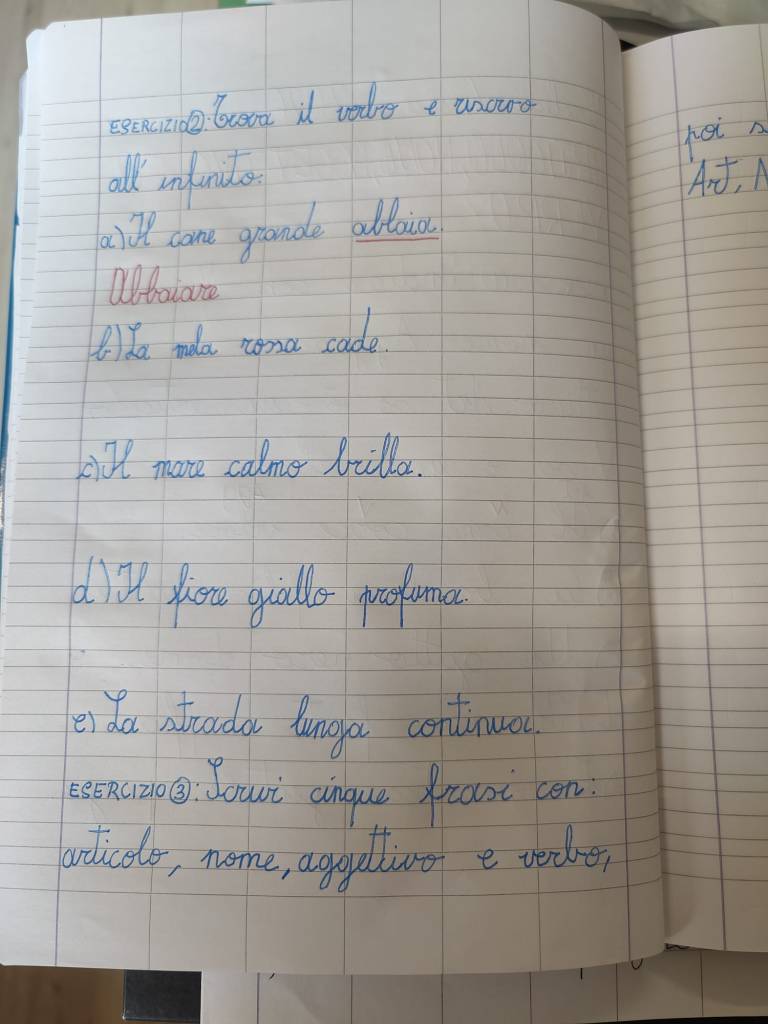 ESERCIZIO②: Trova il verbo e riscrivo
all'infinito:
a) Il cane grande abbaia.
Abbaiare
b) La mela rossa cade.
c) Il mare calmo brilla.
d) Il fiore giallo profuma.
e) La strada lunga continua.
ESERCIZIO③: Scrivi cinque frasi con:
articolo, nome, aggettivo e verbo,
poi s
Art, N